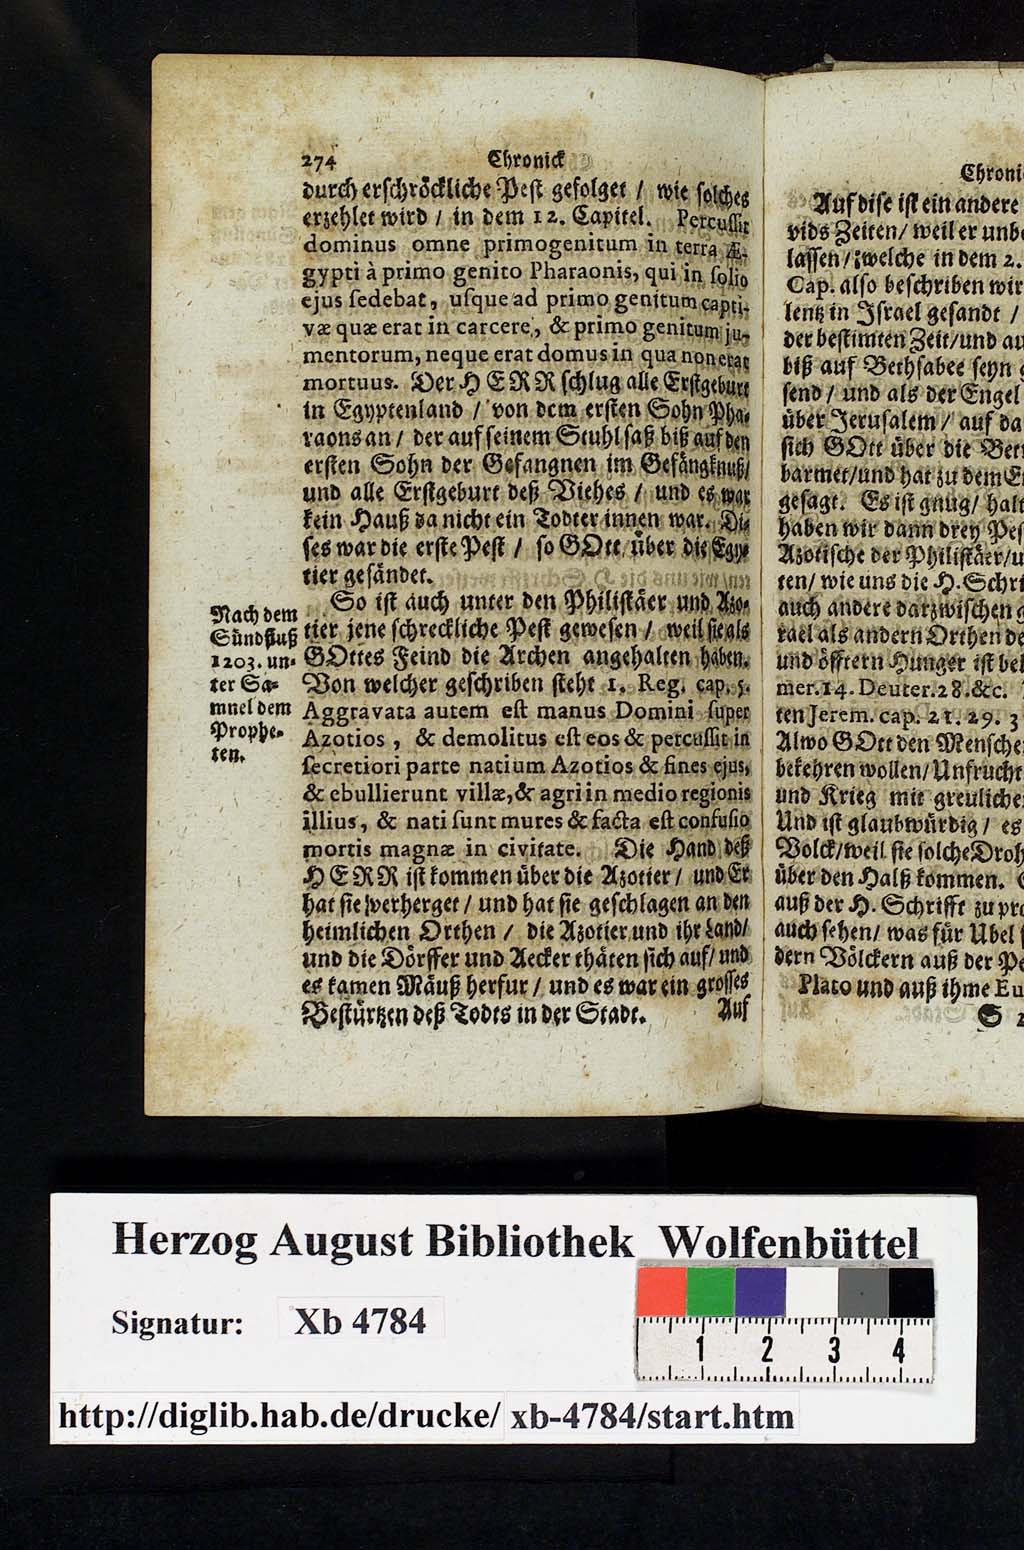 274 Chronick
durch erschröckliche Pest gefolget / wie solches
erzehlet wird / in dem 12. Capitel. Percussit
dominus omne primogenitum in terra Æ-
gypti à primo genito Pharaonis, qui in solio
ejus sedebat, usque ad primo genitum capti-
væ quæ erat in carcere, & primo genitum ju-
mentorum, neque erat domus in qua non erat
mortuus. Der HERR schlug alle Erstgeburt
in Egyptenland / von dem ersten Sohn Pha-
raons an / der auf seinem Stuhl saß biß auf den
ersten Sohn der Gefangnen im Gefängknuß/
und alle Erstgeburt deß Viehes / und es war
kein Hauß da nicht ein Todter innen war. Di-
ses war die erste Pest / so GOtt über die Egyp-
tier gesändet.
So ist auch unter den Philistäer und Azo-
tier jene schreckliche Pest gewesen / weil sie als
GOttes Feind die Archen angehalten haben.
Von welcher geschriben steht 1. Reg. cap. 5.
Aggravata autem est manus Domini super
Azotios, & demolitus est eos & percussit in
secretiori parte natium Azotios & fines ejus,
& ebullierunt villæ, & agri in medio regionis
illius, & nati sunt mures & facta est confusio
mortis magnæ in civitate. Die Hand deß
HERRN ist kommen über die Azotier / und Er
hat sie verherget / und hat sie geschlagen an den
heimlichen Orthen / die Azotier und ihr Land/
und die Dörffer und Aecker thäten sich auf/ und
es kamen Mäuß herfur / und es war ein grosses
Bestürtzen deß Todts in der Stadt. Auf
Nach dem
Sündfluß
1203. un-
ter Sa-
muel dem
Prophe-
ten.
Chroni
Auf dise ist ein andere
vids Zeiten/ weil er unb
lassen / welche in dem 2.
Cap. also beschriben wir
lentz in Israel gesandt /
der bestimten Zeit/und au
biß auf Bethsabee seyn
send / und als der Engel
über Jerusalem / auf da
sich GOtt über die Bet
barmet/und hat zu dem E
gesagt. Es ist gnug/ halt
haben wir dann drey Pes
Azotische der Philistäer/u
ten/ wie uns die H. Schri
auch andere darzwischen g
rael als andern Orthen de
und öfftern Hunger ist bel
mer. 14. Deuter. 28. &c.
ten Jerem. cap. 21. 29. 3
Alwo GOtt den Mensche
bekehren wollen/ Unfrucht
und Krieg mit greuliche
Und ist glaubwürdig / es
Volck/weil sie solche Droh
über den Halß kommen.
auß der H. Schrifft zu pro
auch sehen/ was für Ubel s
dern Völckern auß der Pe
Plato und auß ihme Eu
S 2
Herzog August Bibliothek Wolfenbüttel
Signatur: Xb 4784
1 2 3 4
http://diglib.hab.de/drucke/ xb-4784/start.htm